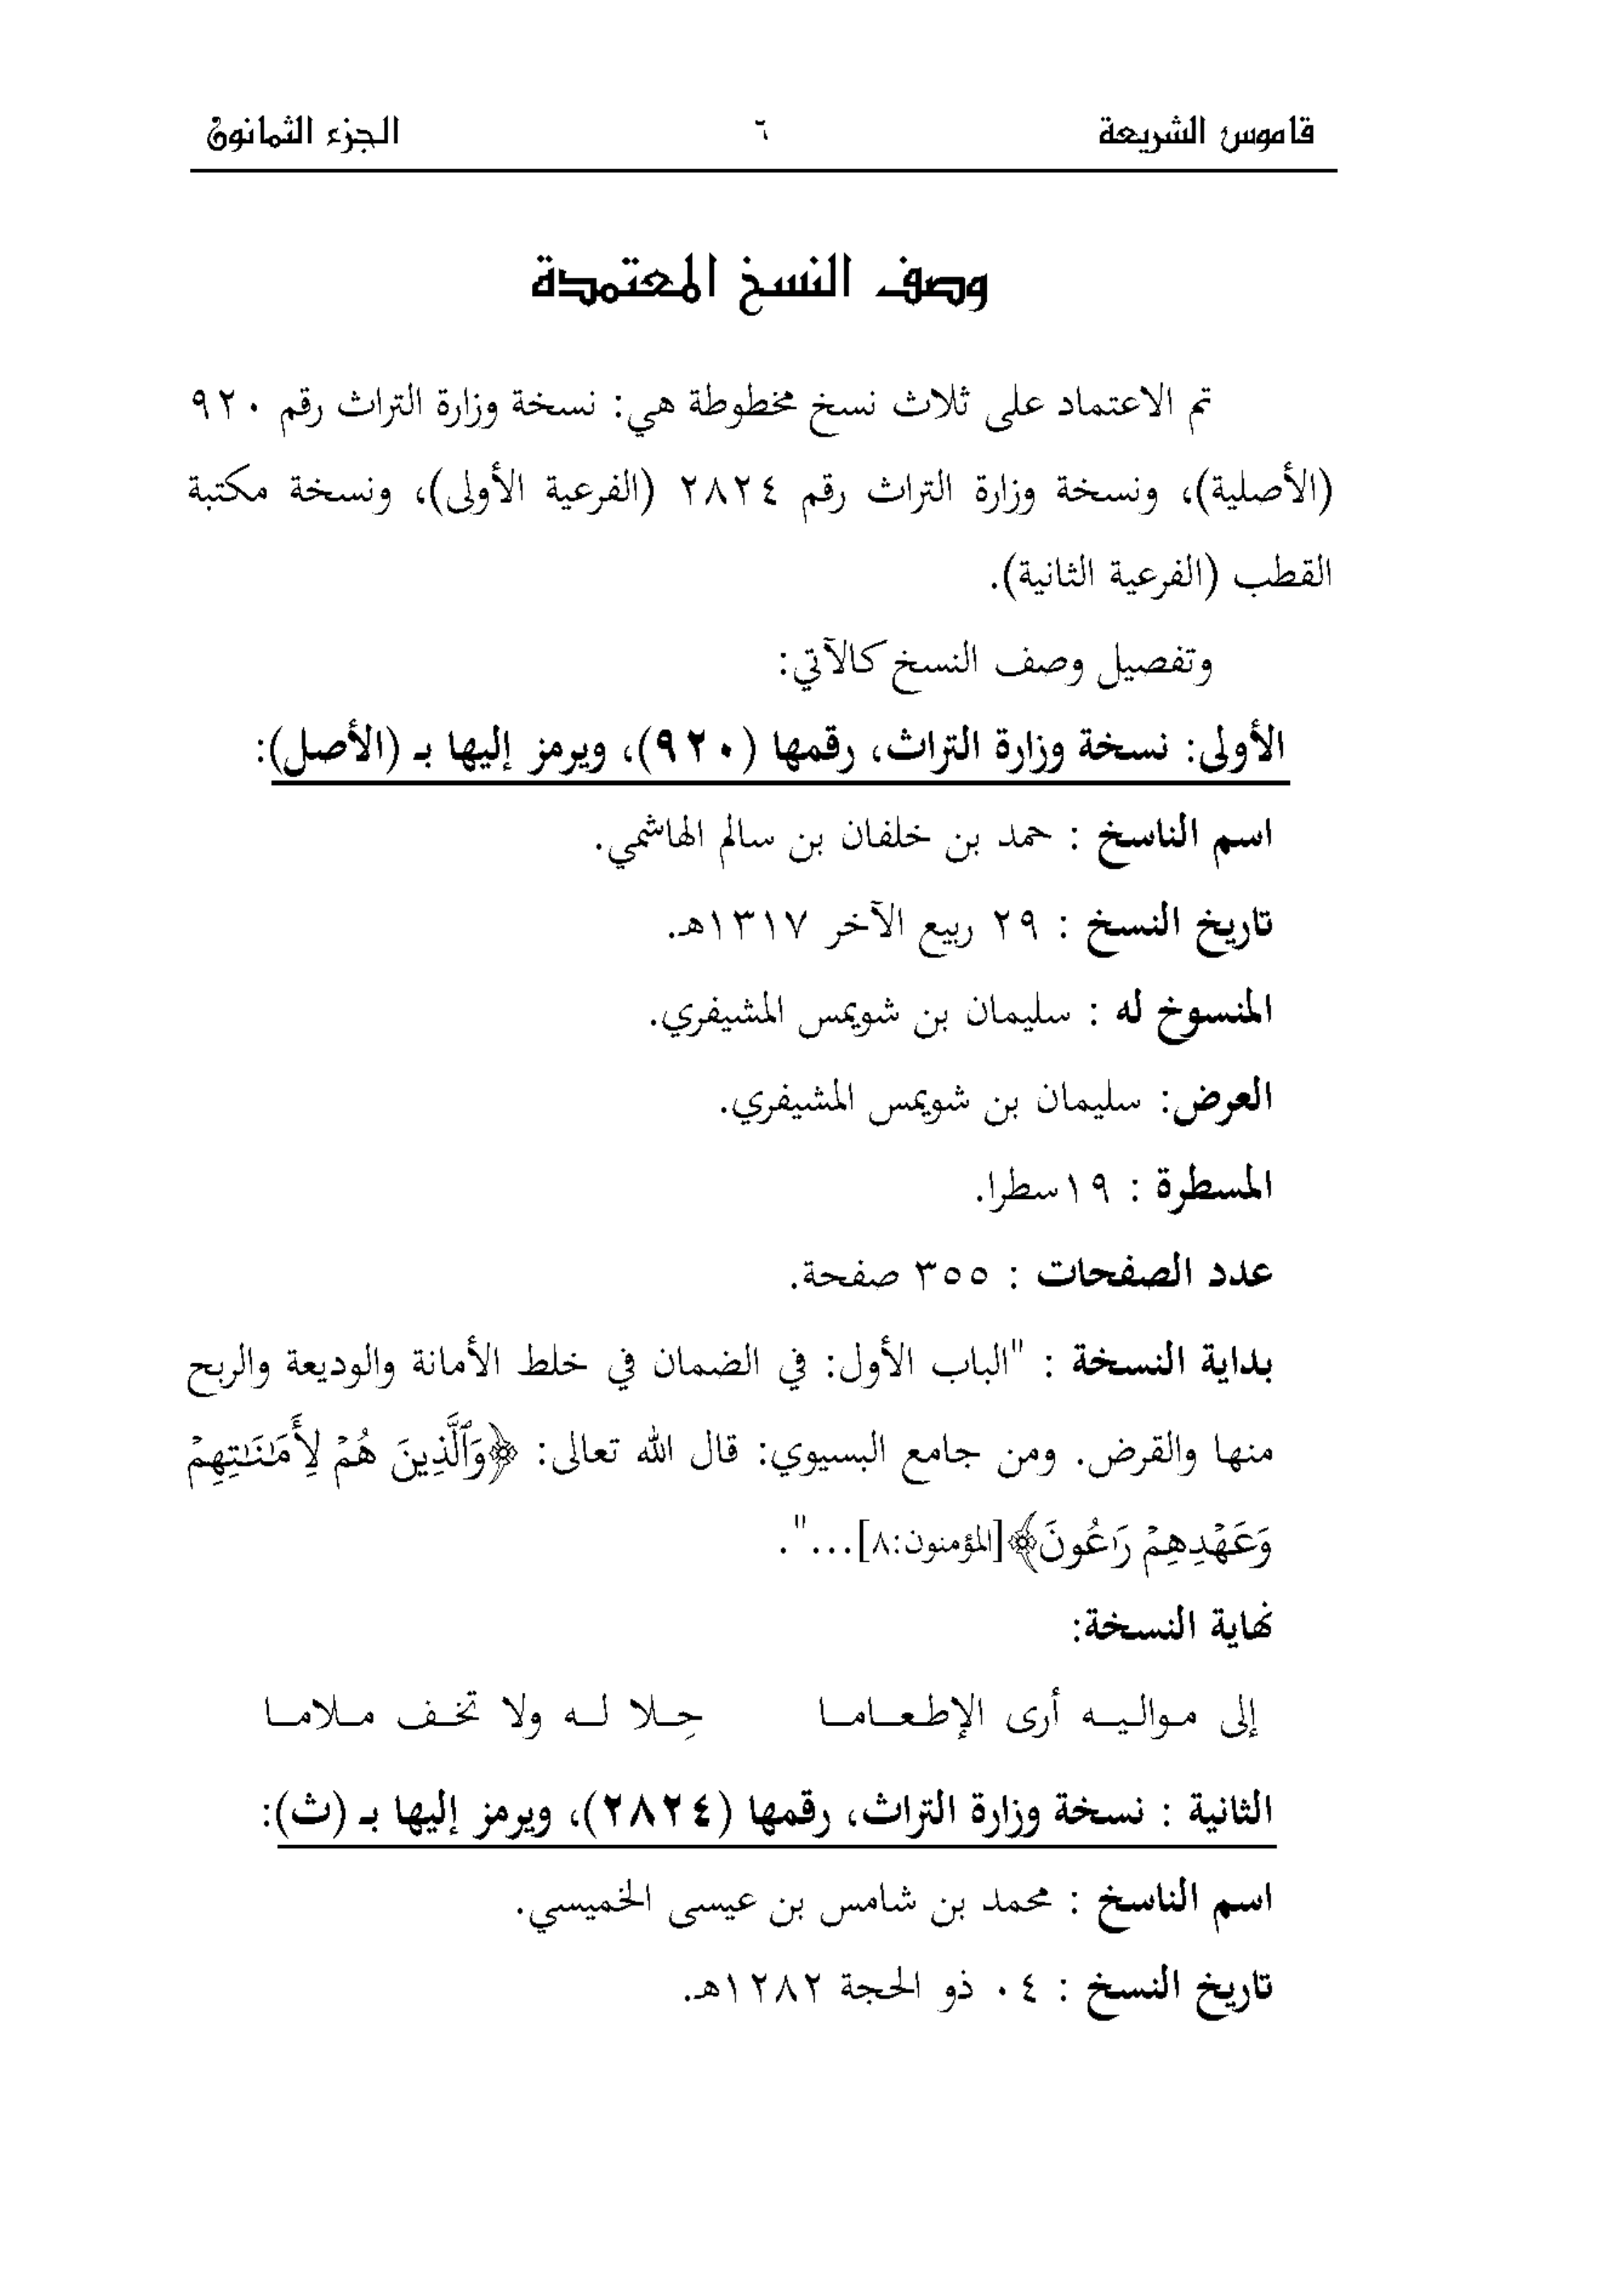 قاموس الشريعة ٦ الجزء الثمانون
وصف النسخ المعتمدة
تم الاعتماد على ثلاث نسخ مخطوطة هي: نسخة وزارة التراث رقم ٩٢٠
(الأصلية)، ونسخة وزارة التراث رقم ٢٨٢٤ (الفرعية الأولى)، ونسخة مكتبة
القطب (الفرعية الثانية).
وتفصيل وصف النسخ كالآتي:
الأولى: نسخة وزارة التراث، رقمها (٩٢٠)، ويرمز إليها بـ (الأصل):
اسم الناسخ : حمد بن خلفان بن سالم الهاشمي.
تاريخ النسخ : ٢٩ ربيع الآخر ١٣١٧هـ.
المنسوخ له : سليمان بن شويمس المشيفري.
العرض: سليمان بن شويمس المشيفري.
المسطرة : ١٩سطرا.
عدد الصفحات : ٣٥٥ صفحة.
بداية النسخة : "الباب الأول: في الضمان في خلط الأمانة والوديعة والربح
منها والقرض. ومن جامع البسيوي: قال الله تعالى: ﴿وَٱلَّذِينَ هُمۡ لِأَمَٰنَٰتِهِمۡ
وَعَهۡدِهِمۡ رَٰعُونَ﴾[المؤمنون:٨]...".
نهاية النسخة:
إلى مواليه أرى الإطعاما حِلا له ولا تخف ملاما
الثانية : نسخة وزارة التراث، رقمها (٢٨٢٤)، ويرمز إليها بـ (ث):
اسم الناسخ : محمد بن شامس بن عيسى الخميسي.
تاريخ النسخ : ٠٤ ذو الحجة ١٢٨٢هـ.